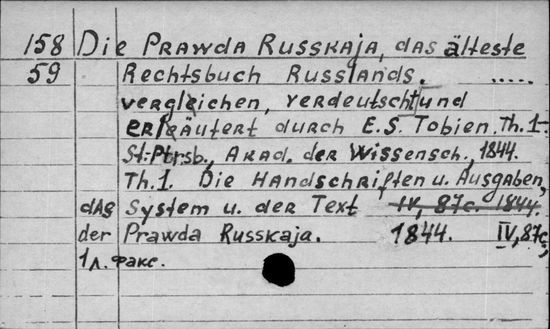 158 Die Prawda Russkaja, das älteste
59 Rechtsbuch Russlands. .....
vergleichen, verdeutscht und
erläutert durch E.S. Tobien. Th.1-
St.-Ptrsb., Akad. der Wissensch., 1844.
Th.1. Die Handschriften u. Ausgaben,
das System u. der Text IV, 87с. 1844.
der Prawda Russkaja. 1844. IV, 87с,
1 л. факс.